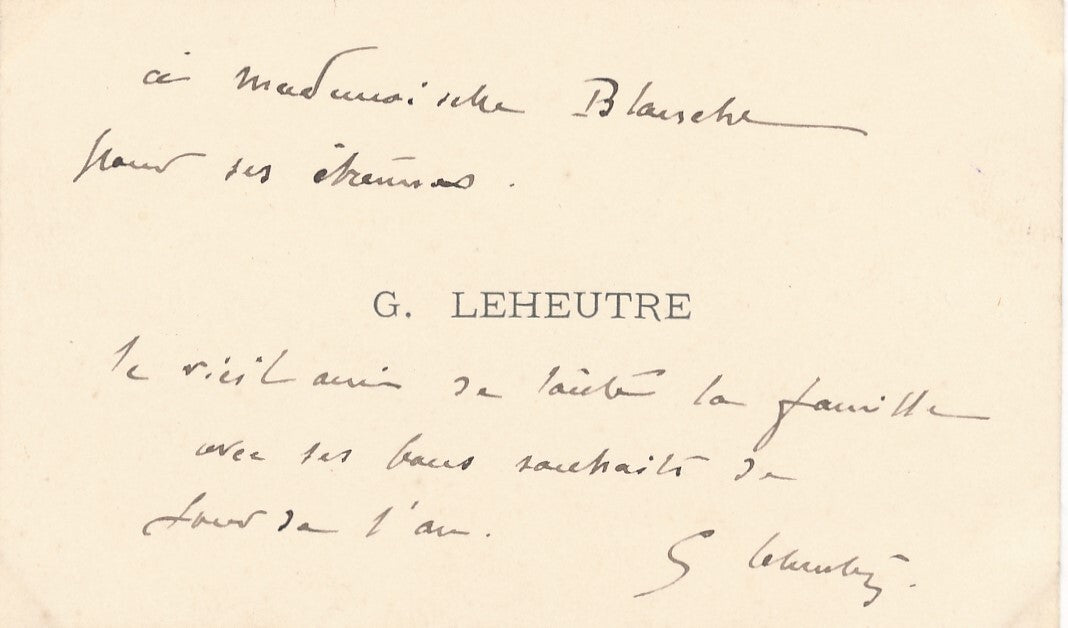 à Mademoiselle Blanche
pour ses étrennes.
G. LEHEUTRE
le vieil ami de toute la famille
avec ses bons souhaits de
jour de l'an.
G Leheutre.